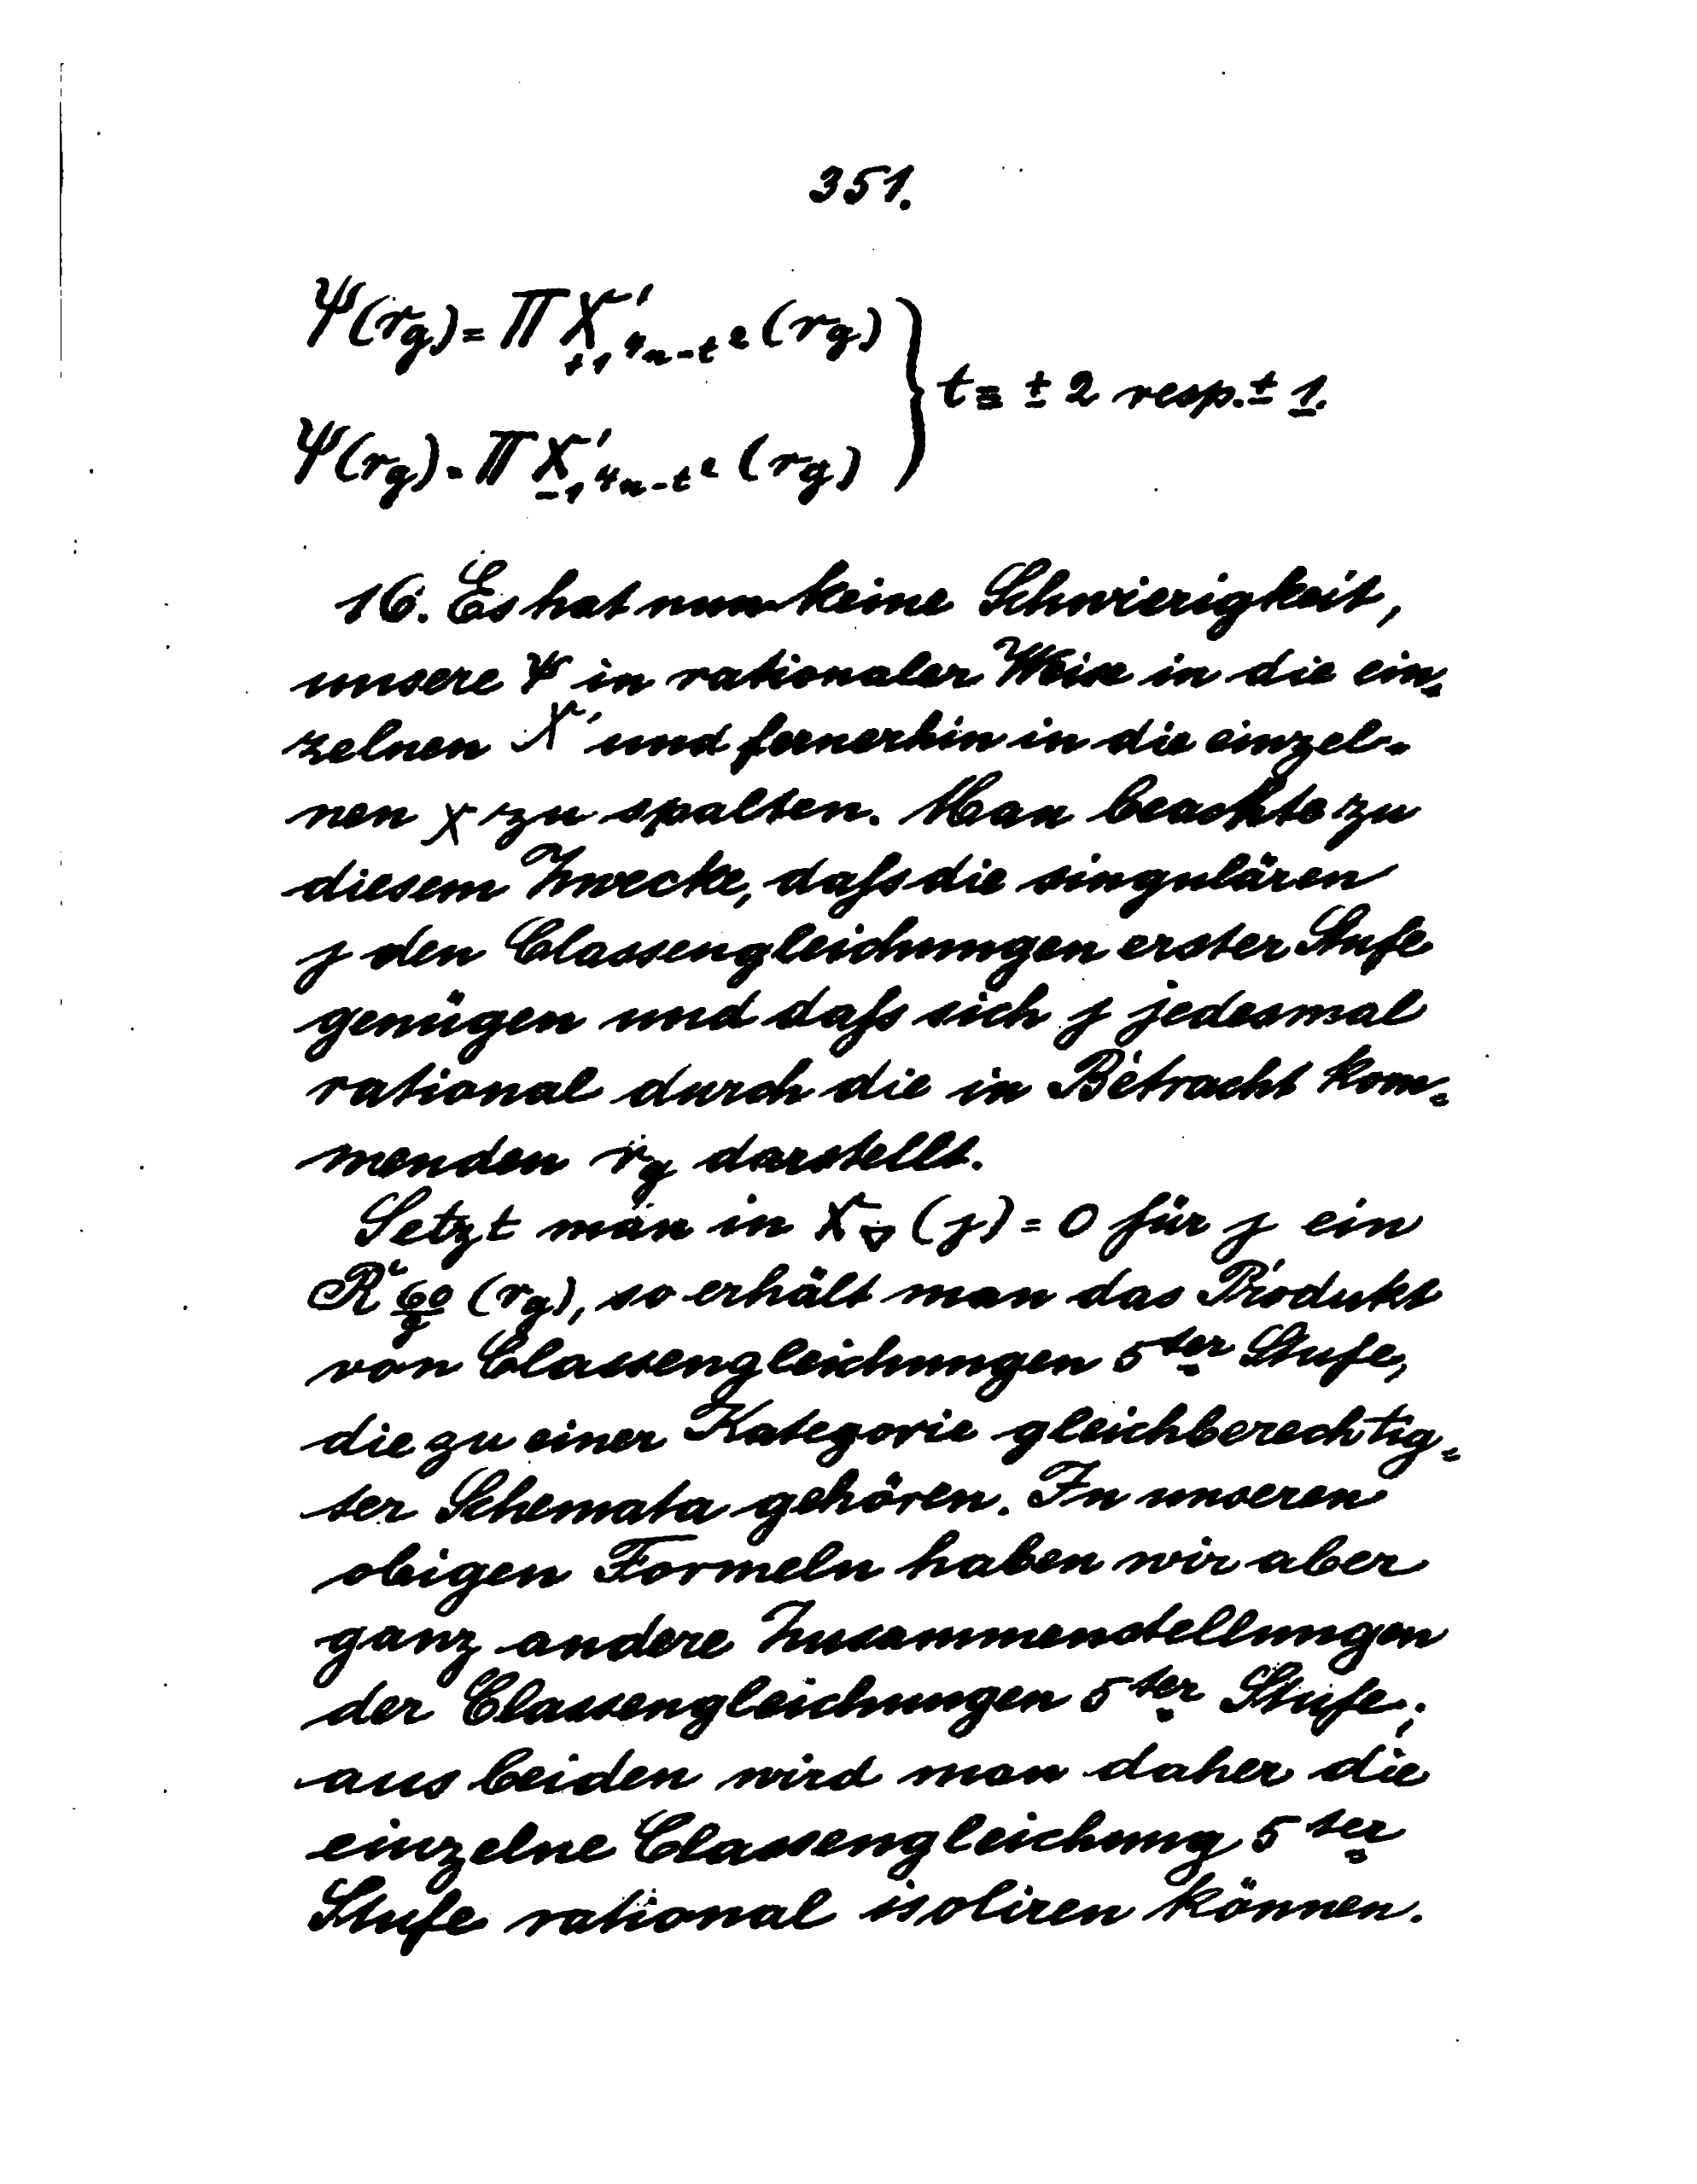 351.
Ψ(r_g) = Π X'_{+1, 4n-t²} (r_g)
t ≡ ± 2 resp. ± 1.
Ψ(r_g) = Π X'_{-1, 4n-t²} (r_g)
16. Es hat nun keine Schwierigkeit,
unsere Ψ in rationaler Weise in die ein=
zelnen X' und fernerhin in die einzel=
nen X zu spalten. Man beachte zu
diesem Zwecke, daſs die singulären
j den Classengleichungen erster Stufe
genügen und daſs sich j jedesmal
rational durch die in Betracht kom=
menden r_g darstellt.
Setzt man in X_∇ (j) = 0 für j ein
R_{60/g} (r_g), so erhält man das Produkt
von Classengleichungen 5ter Stufe,
die zu einer Kategorie gleichberechtig=
ter Schemata gehören. In unseren
obigen Formeln haben wir aber
ganz andere Zusammenstellungen
der Classengleichungen 5ter Stufe;
aus beiden wird man daher die
einzelne Classengleichung 5ter
Stufe rational isoliren können.